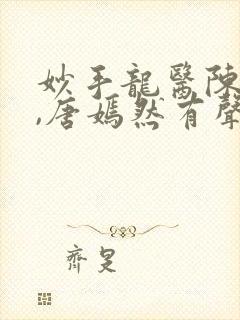 妙手龍醫陳
,唐嫣然有聲
齊旻